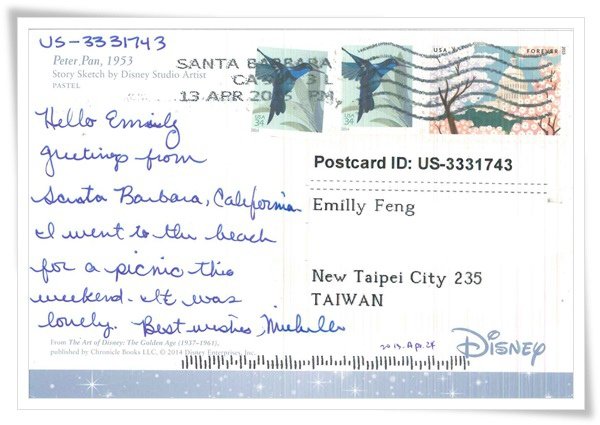 US-3331743
Peter Pan, 1953
Story Sketch by Disney Studio Artist
PASTEL
SANTA BARBARA
CA
13 APR PM
USA
34
USA
34
USA
FOREVER
Hello Emily
greetings from
Santa Barbara, California
I went to the beach
for a picnic this
weekend. It was
lovely. Best wishes, Michelle
Postcard ID: US-3331743
Emilly Feng
New Taipei City 235
TAIWAN
2015. Apr. 24
From The Art of Disney: The Golden Age (1937–1961),
published by Chronicle Books LLC, © 2014 Disney Enterprises, Inc.
DISNEY